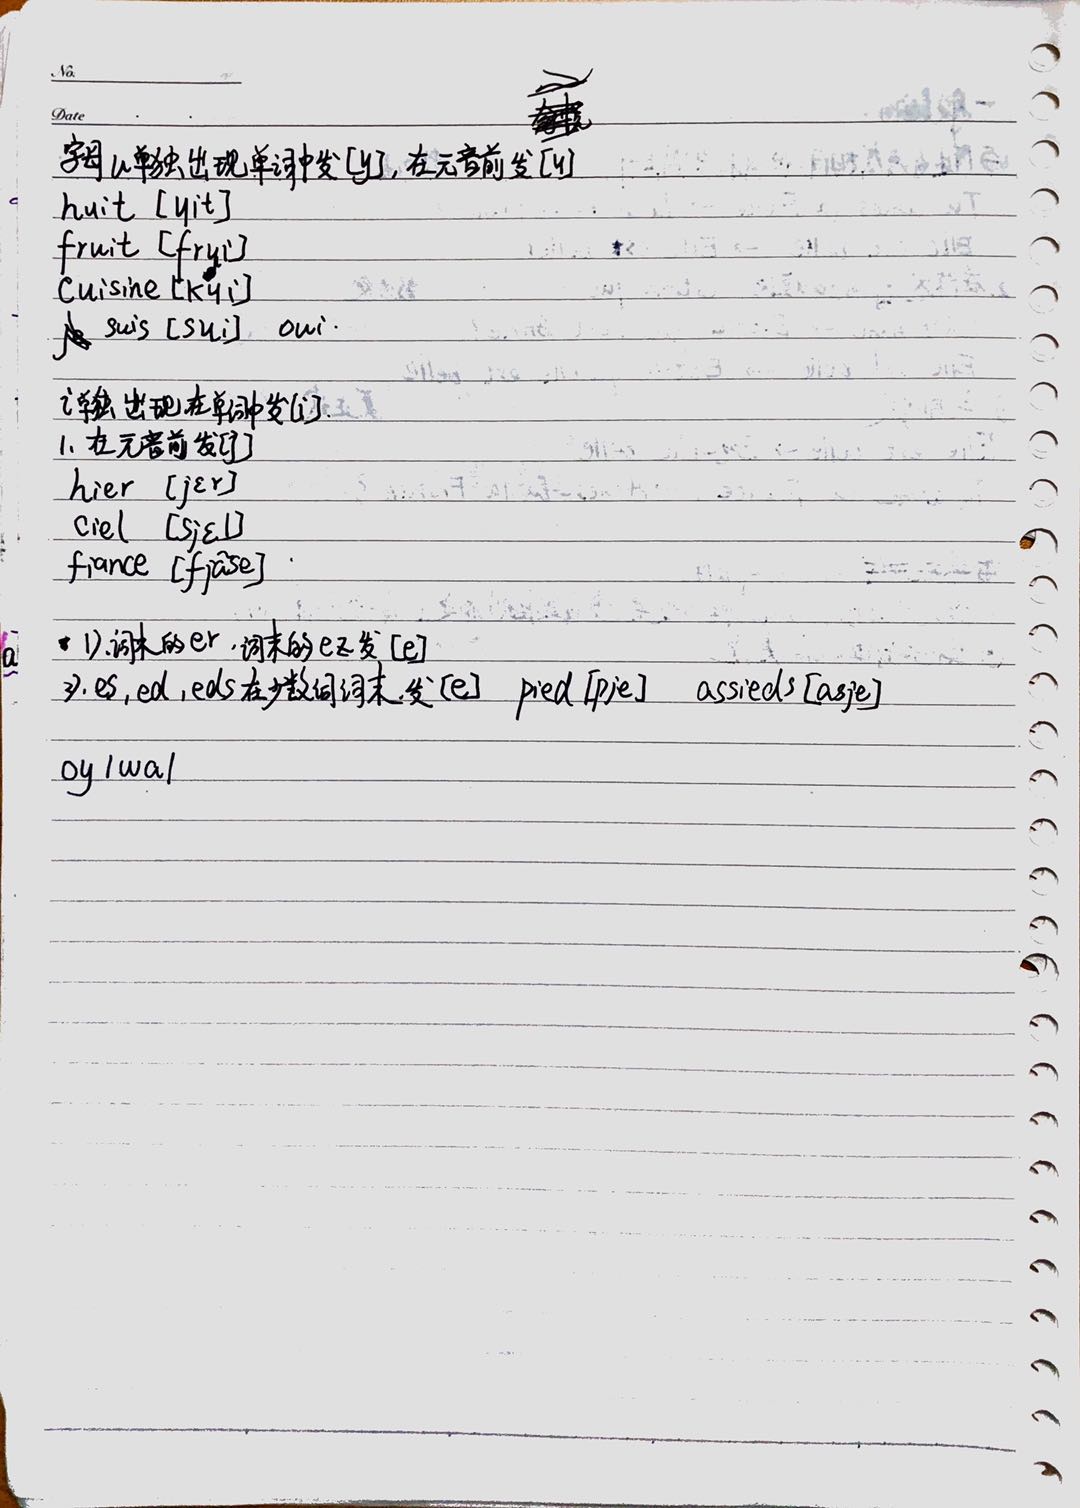 No.
Date
字母u单独出现单词中发[y],在元音前发[ɥ]
huit [ɥit]
fruit [frɥi]
cuisine [kɥi]
suis [sɥi] oui.
i单独出现在单词中发[i].
1. 在元音前发[j]
hier [jɛr]
ciel [sjɛl]
fiance [fjɑ̃se]
1).词末的er.词末的ez发[e]
3).es,ed,eds在少数词词末.发[e] pied [pje] assieds [asje]
oy /wa/
a